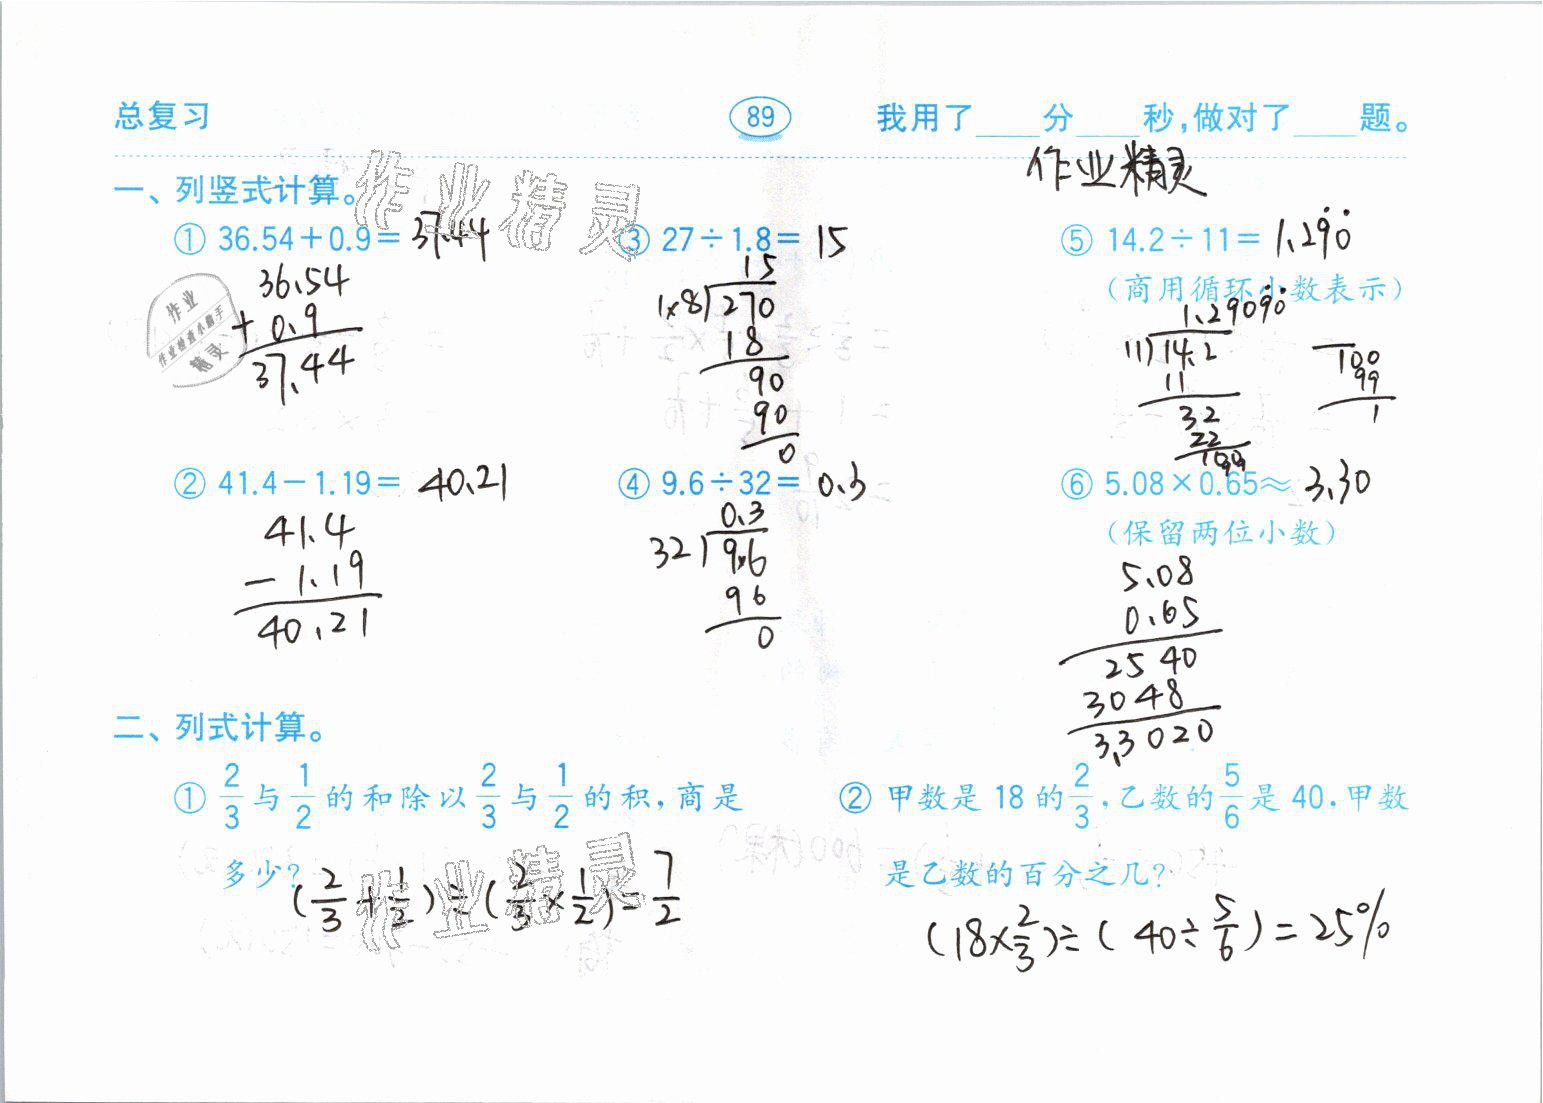 总复习
89
我用了____分____秒,做对了____题。
作业精灵
一、列竖式计算。
① 36.54+0.9= 37.44
36.54
+ 0.9
37.44
② 41.4-1.19= 40.21
41.4
- 1.19
40.21
③ 27÷1.8= 15
15
1.8)270
18
90
90
0
④ 9.6÷32= 0.3
0.3
32)9.6
96
0
⑤ 14.2÷11= 1.29̇0̇
(商用循环小数表示)
1.2909̇0̇
11)14.2
11
32
22
100
99
1
⑥ 5.08×0.65≈ 3.30
(保留两位小数)
5.08
0.65
2540
3048
3.3020
二、列式计算。
① 2/3与1/2的和除以2/3与1/2的积,商是
多少?
(2/3+1/2)÷(2/3×1/2)=7/2
② 甲数是18的2/3,乙数的5/6是40,甲数
是乙数的百分之几?
(18×2/3)÷(40÷5/6)=25%
作业精灵
作业精灵
作业
作业检查小助手
精灵